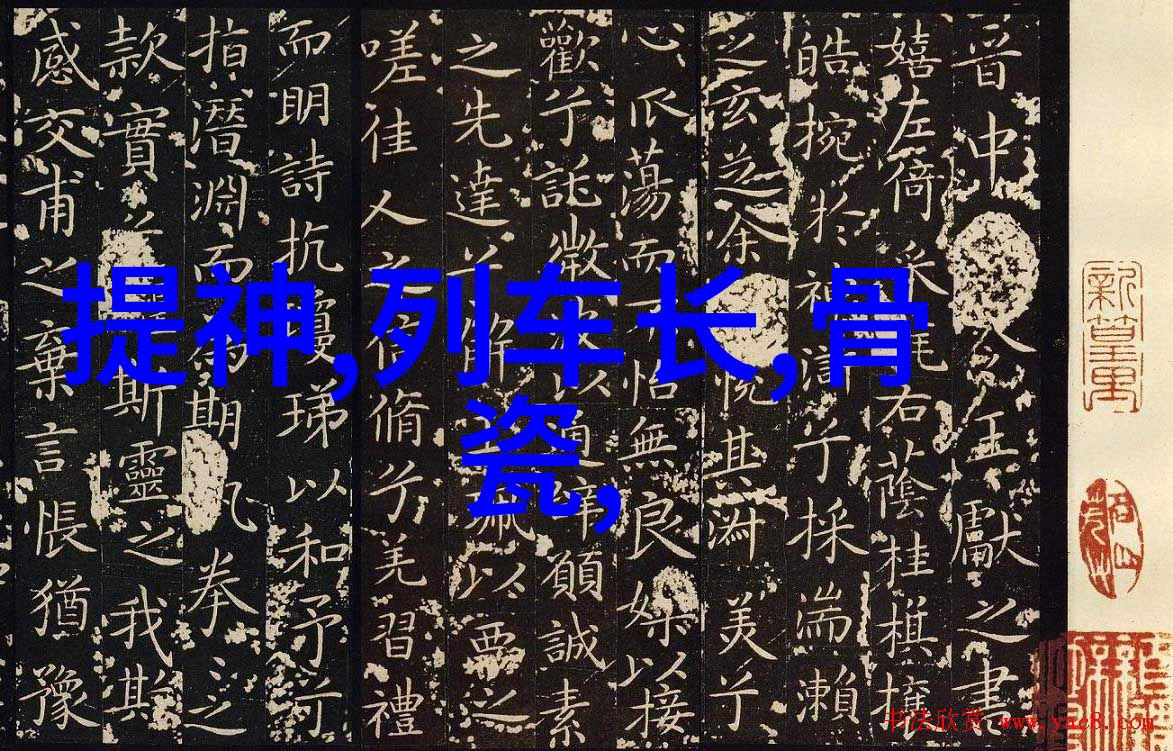 提神,列车长,骨
瓷,
晋中王獻之書
嬉左倚采旄右蔭桂棋攘
皓捥於神滸兮採湍瀨
之玄芝余悅其淑美兮
心爪蕩而不怡無良媒以接
歡兮託微波以通辭願誠素
之先達兮解珮以要之
嗟佳人之信脩兮羌習禮
而明詩抗瓊珶以和予兮
指潛淵而為期凡拳之
款實兮斯靈之我斯
感交甫之棄言悵猶豫
书法欣赏 www.yac8.com